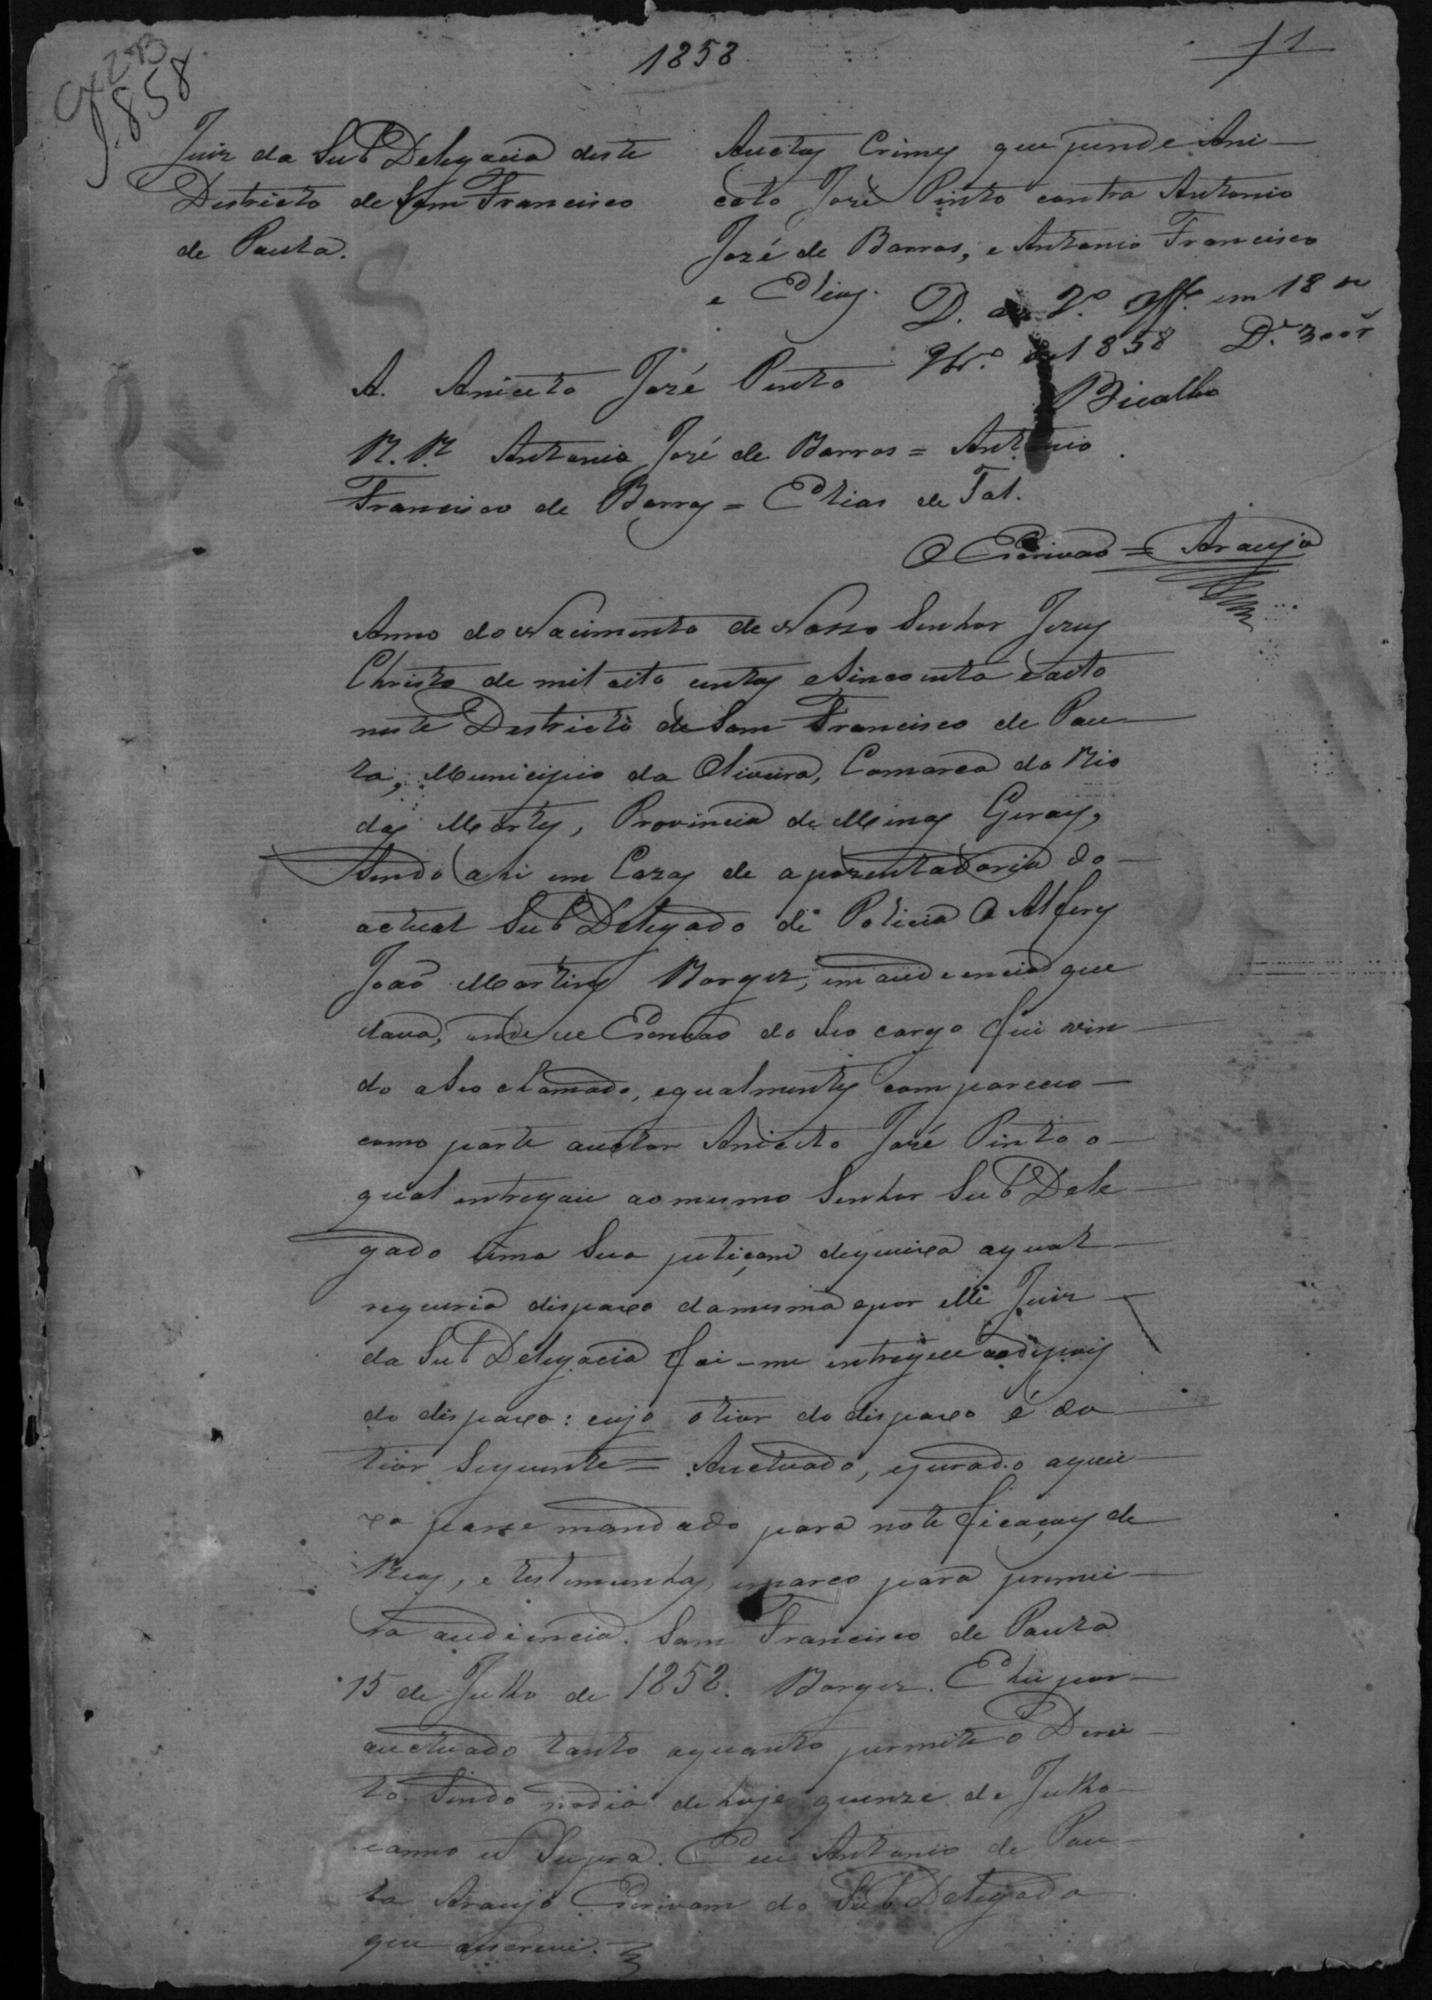 Cx 273
1858
1858
11
Juiz da Sub Delegacia deste
Destricto de Sam Francisco
de Paula.
Auctos Crimes que pende Ani-
ceto José Pinto contra Antonio
José de Barros, e Antonio Francisco
e Elias.
D. ao 2º Off. em 18 de
9br.º de 1858 D.e 300r
Bicalho
A. Aniceto José Pinto
R.R. Antonio José de Barros = Antonio
Francisco de Barros = Elias de Tal.
O Escrivão = Araujo
Anno do Nacimento de Nosso Senhor Jezus
Christo de mil oito centos esincoenta eoito
neste Destricto de Sam Francisco de Pau-
la, Municipio da Oliveira, Comarca do Rio
das Mortes, Provincia de Minas Geraes,
Sendo ahi em Cazas de apozentadoria do
actual Sub Delegado de Policia O Alferes
João Martins Borges, em audiencia que
dava, onde eu Escrivão do Seo cargo fui vin-
do aSeo chamado, egualmente compareceo
como parte auctor Aniceto José Pinto o
qual entregou aomesmo Senhor Sub Dele-
gado uma Sua petiçam dequeixa aqual
requeria despaxo damesma epor elle Juiz
da Sub Delegacia foi-me entregue depois
do despaxo: cujo otior do despaxo é do
tior Seguinte = Auctuado, ejurado aquei-
xa passe mandado para noteficação de
Reos, e testemunhas, emarco para primei-
ra audiencia. Sam Francisco de Paula
15 de Julho de 1858. Borges. Ehei por
auctuado tanto aquanto permite o Derei-
to Sendo nodia dehoje quinze de Julho
eanno ut Supra. Eu Antonio de Pau-
la Araujo Escrivam do Sub Delegado
que escrevi.